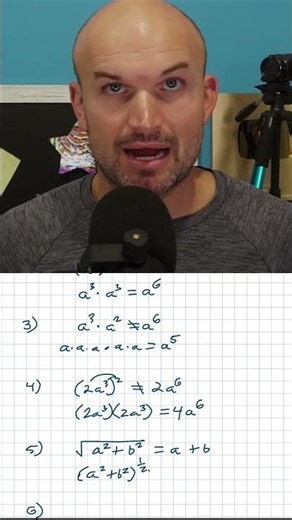 a³ · a³ = a⁶
3) a³ · a² ≠ a⁶
a·a·a·a·a = a⁵
4) (2a³)² ≠ 2a⁶
(2a³)(2a³) = 4a⁶
5) √(a² + b²) = a + b
(a² + b²)^½
6)